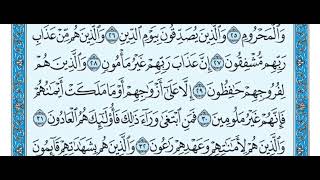 وَٱلۡمَحۡرُومِ ٢٥ وَٱلَّذِينَ يُصَدِّقُونَ بِيَوۡمِ ٱلدِّينِ ٢٦ وَٱلَّذِينَ هُم مِّنۡ عَذَابِ
رَبِّهِم مُّشۡفِقُونَ ٢٧ إِنَّ عَذَابَ رَبِّهِمۡ غَيۡرُ مَأۡمُونٖ ٢٨ وَٱلَّذِينَ هُمۡ
لِفُرُوجِهِمۡ حَٰفِظُونَ ٢٩ إِلَّا عَلَىٰٓ أَزۡوَٰجِهِمۡ أَوۡ مَا مَلَكَتۡ أَيۡمَٰنُهُمۡ
فَإِنَّهُمۡ غَيۡرُ مَلُومِينَ ٣٠ فَمَنِ ٱبۡتَغَىٰ وَرَآءَ ذَٰلِكَ فَأُوْلَٰٓئِكَ هُمُ ٱلۡعَادُونَ ٣١
وَٱلَّذِينَ هُمۡ لِأَمَٰنَٰتِهِمۡ وَعَهۡدِهِمۡ رَٰعُونَ ٣٢ وَٱلَّذِينَ هُم بِشَهَٰدَٰتِهِمۡ قَآئِمُونَ